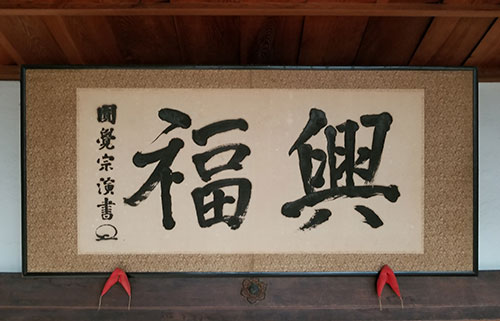 興福
圓覺宗演書